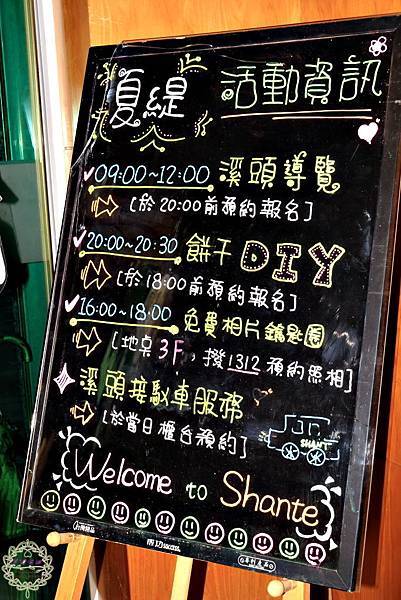 夏緹 活動資訊
09:00~12:00 溪頭導覽
[於 20:00前預約報名]
20:00~20:30 餅干 DIY
[於 18:00前預約報名]
16:00~18:00 免費相片鑰匙圈
[地點 3F, 撥1312 預約照相]
溪頭接駁車服務
[於當日櫃台預約]
SHANTE
Welcome to Shante
雨功success.